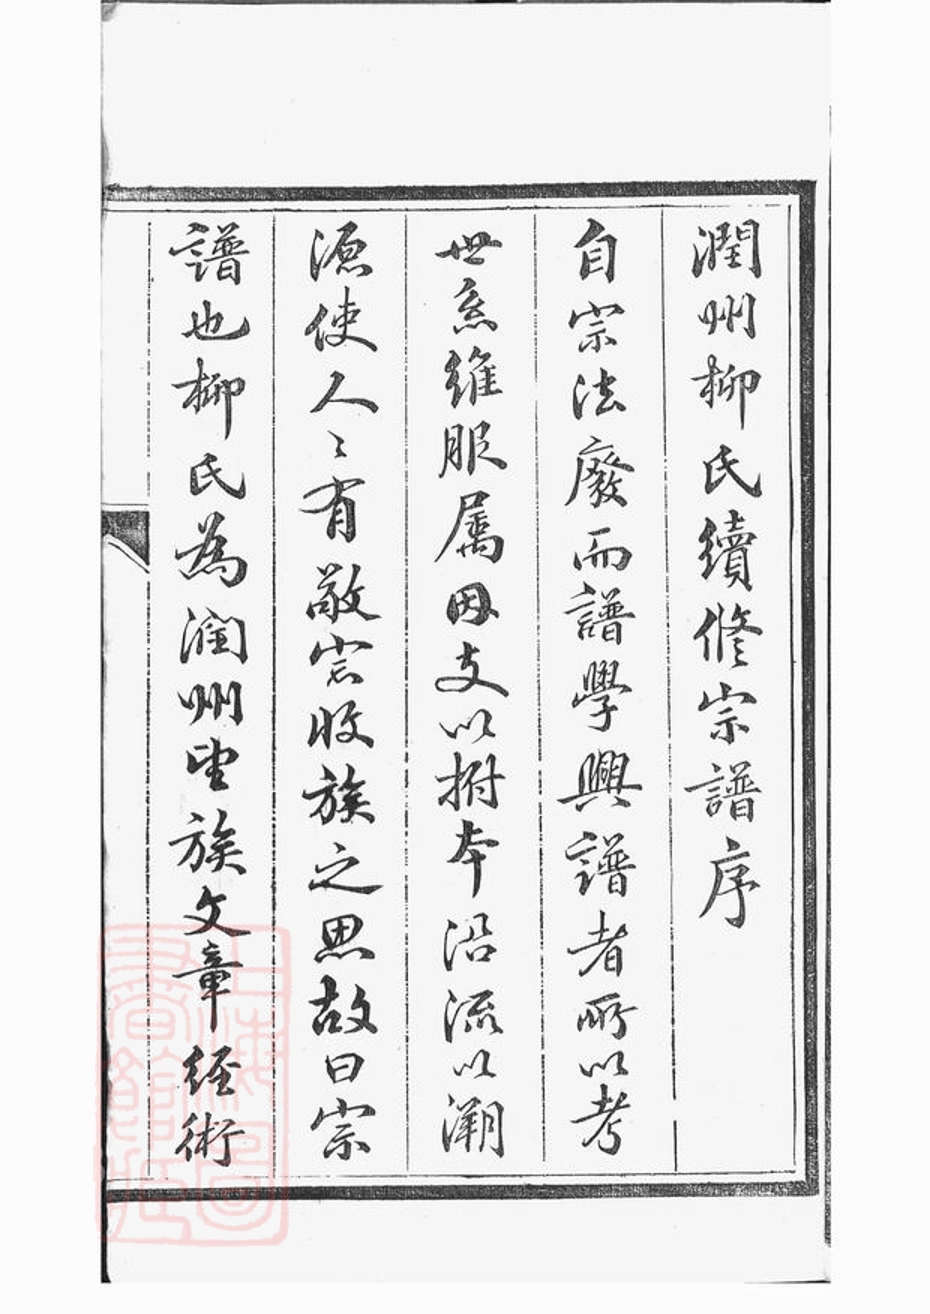 潤州柳氏續修宗譜序
自宗法廢而譜學興譜者所以考
世系維服属因支以拊本沿流以溯
源使人〻有敬宗收族之思故曰宗
譜也柳氏為润州望族文章経術
上海圖書館藏